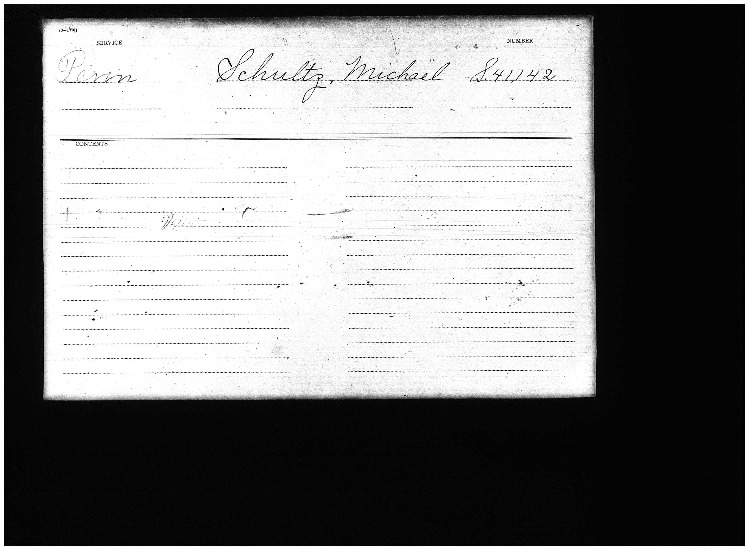 SERVICE NUMBER
Penn Schultz, Michael S.41142
CONTENTS